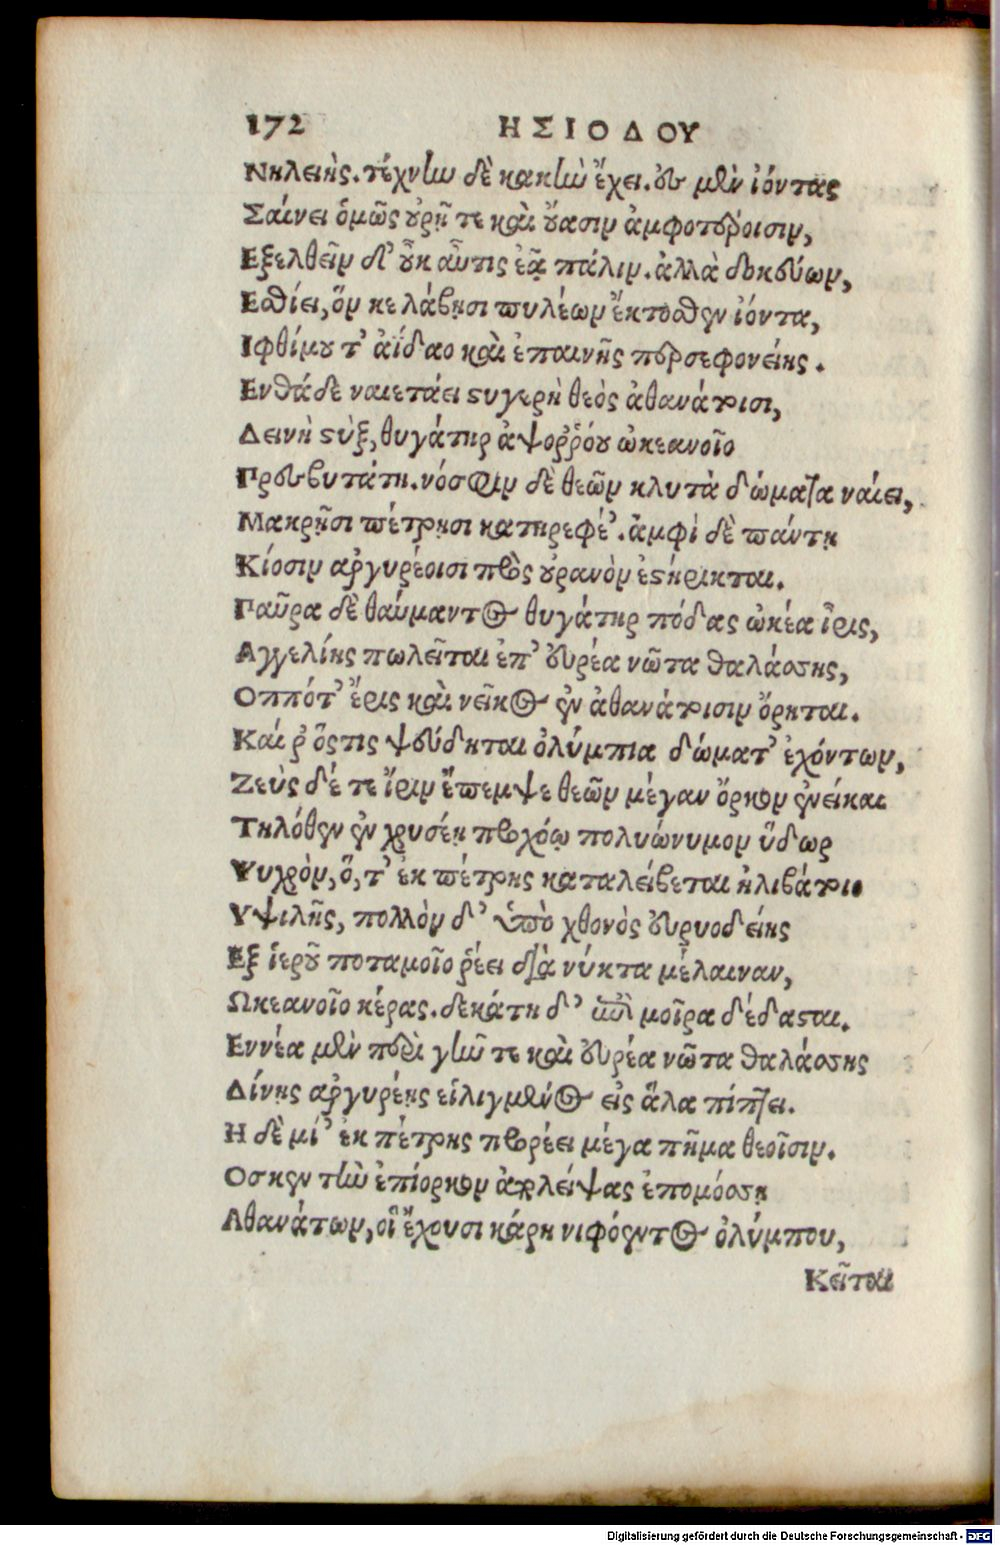 172 ΗΣΙΟΔΟΥ
Νηλειὴς. τέχνίω δὲ κακίω ἔχει. ἐς μὲν ἰόντας
Σαίνει ὁμῶς ὐρῇ τε καὶ ὔασιν ἀμφοτέροισιν,
Εξελθεῖν δ' ὖκ αὖτις ἐᾷ πάλιν. ἀλλὰ δοκεύων,
Εσθίει, ὅν κε λάβῃσι πυλέων ἔκτοσθεν ἰόντα,
Ιφθίμου τ' ἀίδαο καὶ ἐπαινῆς περσεφονείης.
Ενθάδε ναιετάει ςυγερὴ θεὸς ἀθανάτοισι,
Δεινὴ ςὺξ, θυγάτηρ ἀψοῤῥόου ὠκεανοῖο
Πρεσβυτάτη. νόσφιν δὲ θεῶν κλυτὰ δώματα ναίει,
Μακρῇσι πέτρῃσι κατηρεφέ'. ἀμφὶ δὲ πάντῃ
Κίοσιν ἀργυρέοισι πρὸς οὐρανὸν ἐςήρικται.
Παῦρα δὲ θαύμαντος θυγάτηρ πόδας ὠκέα ἶρις,
Αγγελίης πωλεῖται ἐπ' εὐρέα νῶτα θαλάσσης,
Οππότ' ἔρις καὶ νεῖκος ἐν ἀθανάτοισιν ὄρηται.
Καί ῥ ὅςτις ψεύδηται ὀλύμπια δώματ' ἐχόντων,
Ζεὺς δέ τε ἴριν ἔπεμψε θεῶν μέγαν ὅρκον ἐνεῖκαι
Τηλόθεν ἐν χρυσέῃ προχόῳ πολυώνυμον ὕδωρ
Ψυχρὸν, ὅ, τ' ἐκ πέτρης καταλείβεται ἠλιβάτοιο
Υψιλῆς, πολλὸν δ' ὑπὸ χθονὸς εὐρυοδείης
Εξ ἱεροῦ ποταμοῖο ῥέει διὰ νύκτα μέλαιναν,
Ωκεανοῖο κέρας. δεκάτη δ' ἐπὶ μοῖρα δέδαςαι.
Εννέα μὲν περὶ γῆν τε καὶ εὐρέα νῶτα θαλάσσης
Δίνῃς ἀργυρέῃς εἱλιγμένος εἰς ἅλα πίπτει.
Η δὲ μί' ἐκ πέτρης προρέει μέγα πῆμα θεοῖσιν.
Οσκεν τὴν ἐπίορκον ἀπολείψας ἐπομόσσῃ
Αθανάτων, οἳ ἔχουσι κάρη νιφόεντος ὀλύμπου,
Κεῖται
Digitalisierung gefördert durch die Deutsche Forschungsgemeinschaft - DFG